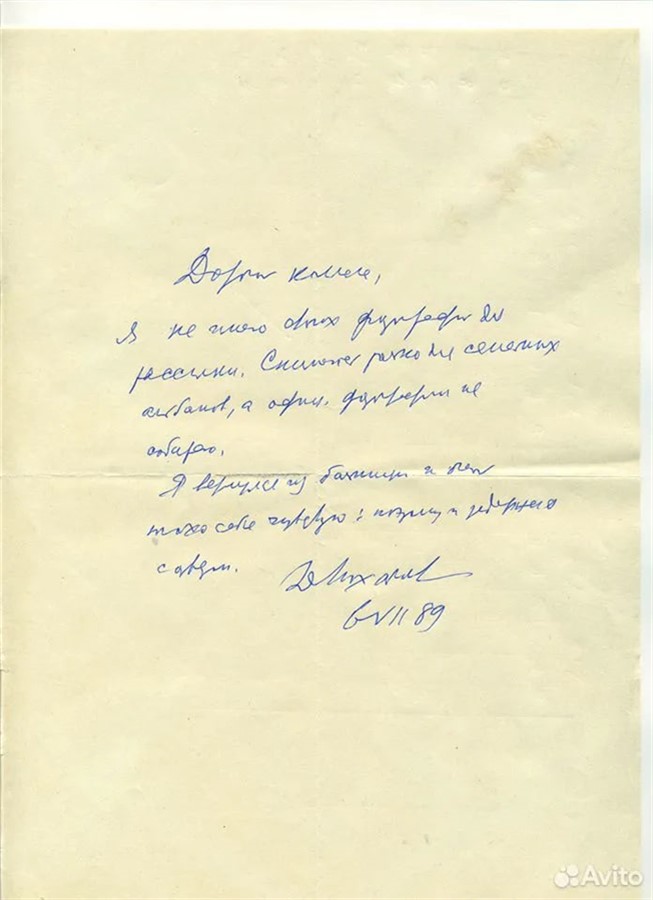 Дорогой коллега,
Я не имею своих фотографий для
рассылки. Снимают только для семейных
альбомов, а офиц. фотографии не
собираю.
Я вернулся из больницы и
плохо себя чувствую: поэтому и задержался
с ответом.
Д Лихачев
6 VII 89
Avito